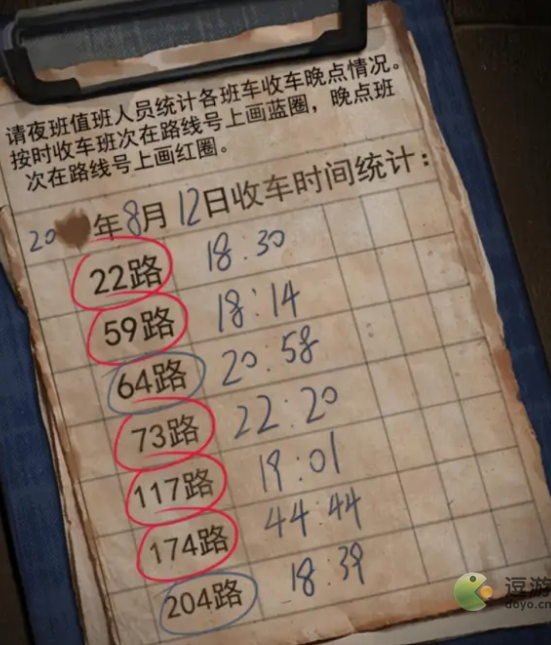 请夜班值班人员统计各班车收车晚点情况。
按时收车班次在路线号上画蓝圈，晚点班
次在路线号上画红圈。
20 年8月12日收车时间统计：
22路 18:30
59路 18:14
64路 20:58
73路 22:20
117路 19:01
174路 44:44
204路 18:39
逗游
doyo.cn